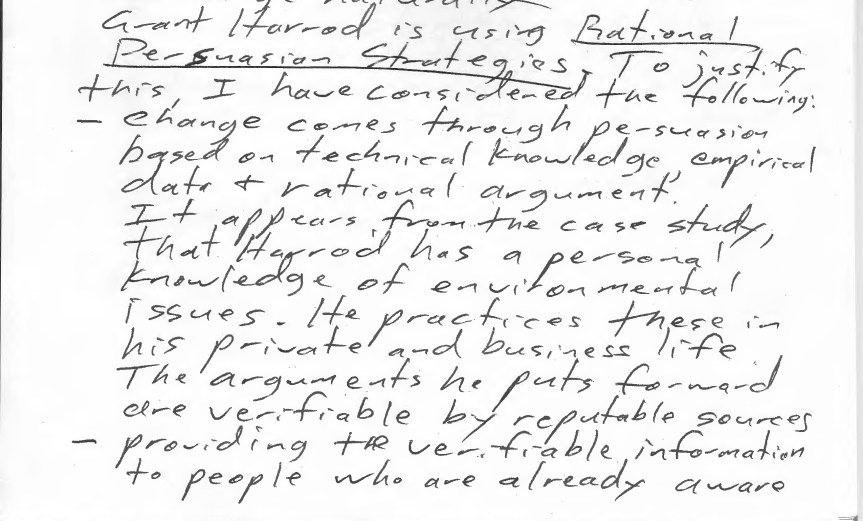 Grant Harrod is using Rational
Persuasian Strategies. To justify
this, I have considered the following:
- change comes through persuasion
based on technical knowledge, empirical
data + rational argument.
It appears from the case study,
that Harrod has a personal
knowledge of environmental
issues. He practices these in
his private and business life.
The arguments he puts forward
are verifiable by reputable sources
- providing the verifiable information
to people who are already aware